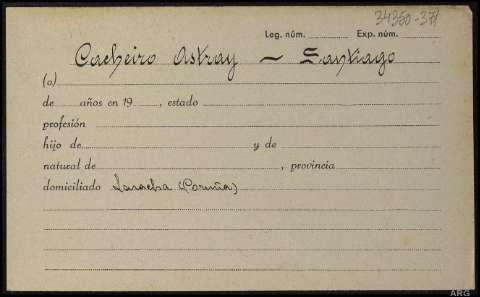 34350-371
Leg. núm. Exp. núm.
Cacheiro Astray — Santiago
(a)
de años en 19 , estado
profesión
hijo de y de
natural de , provincia
domiciliado Laracha (Coruña)
ARG